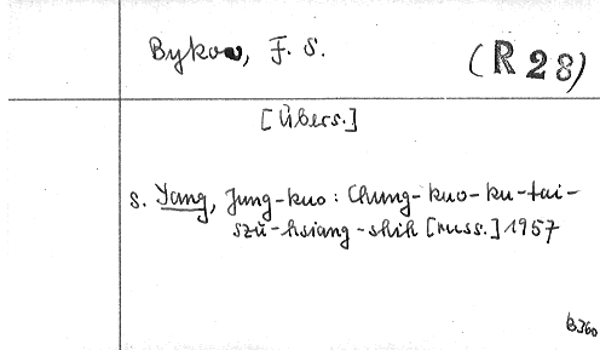 Bykow, F. S. (R 28)
[Übers.]
s. Yang, Jung-kuo: Chung-kuo-ku-tai-
szŭ-hsiang-shih [russ.] 1957
B360